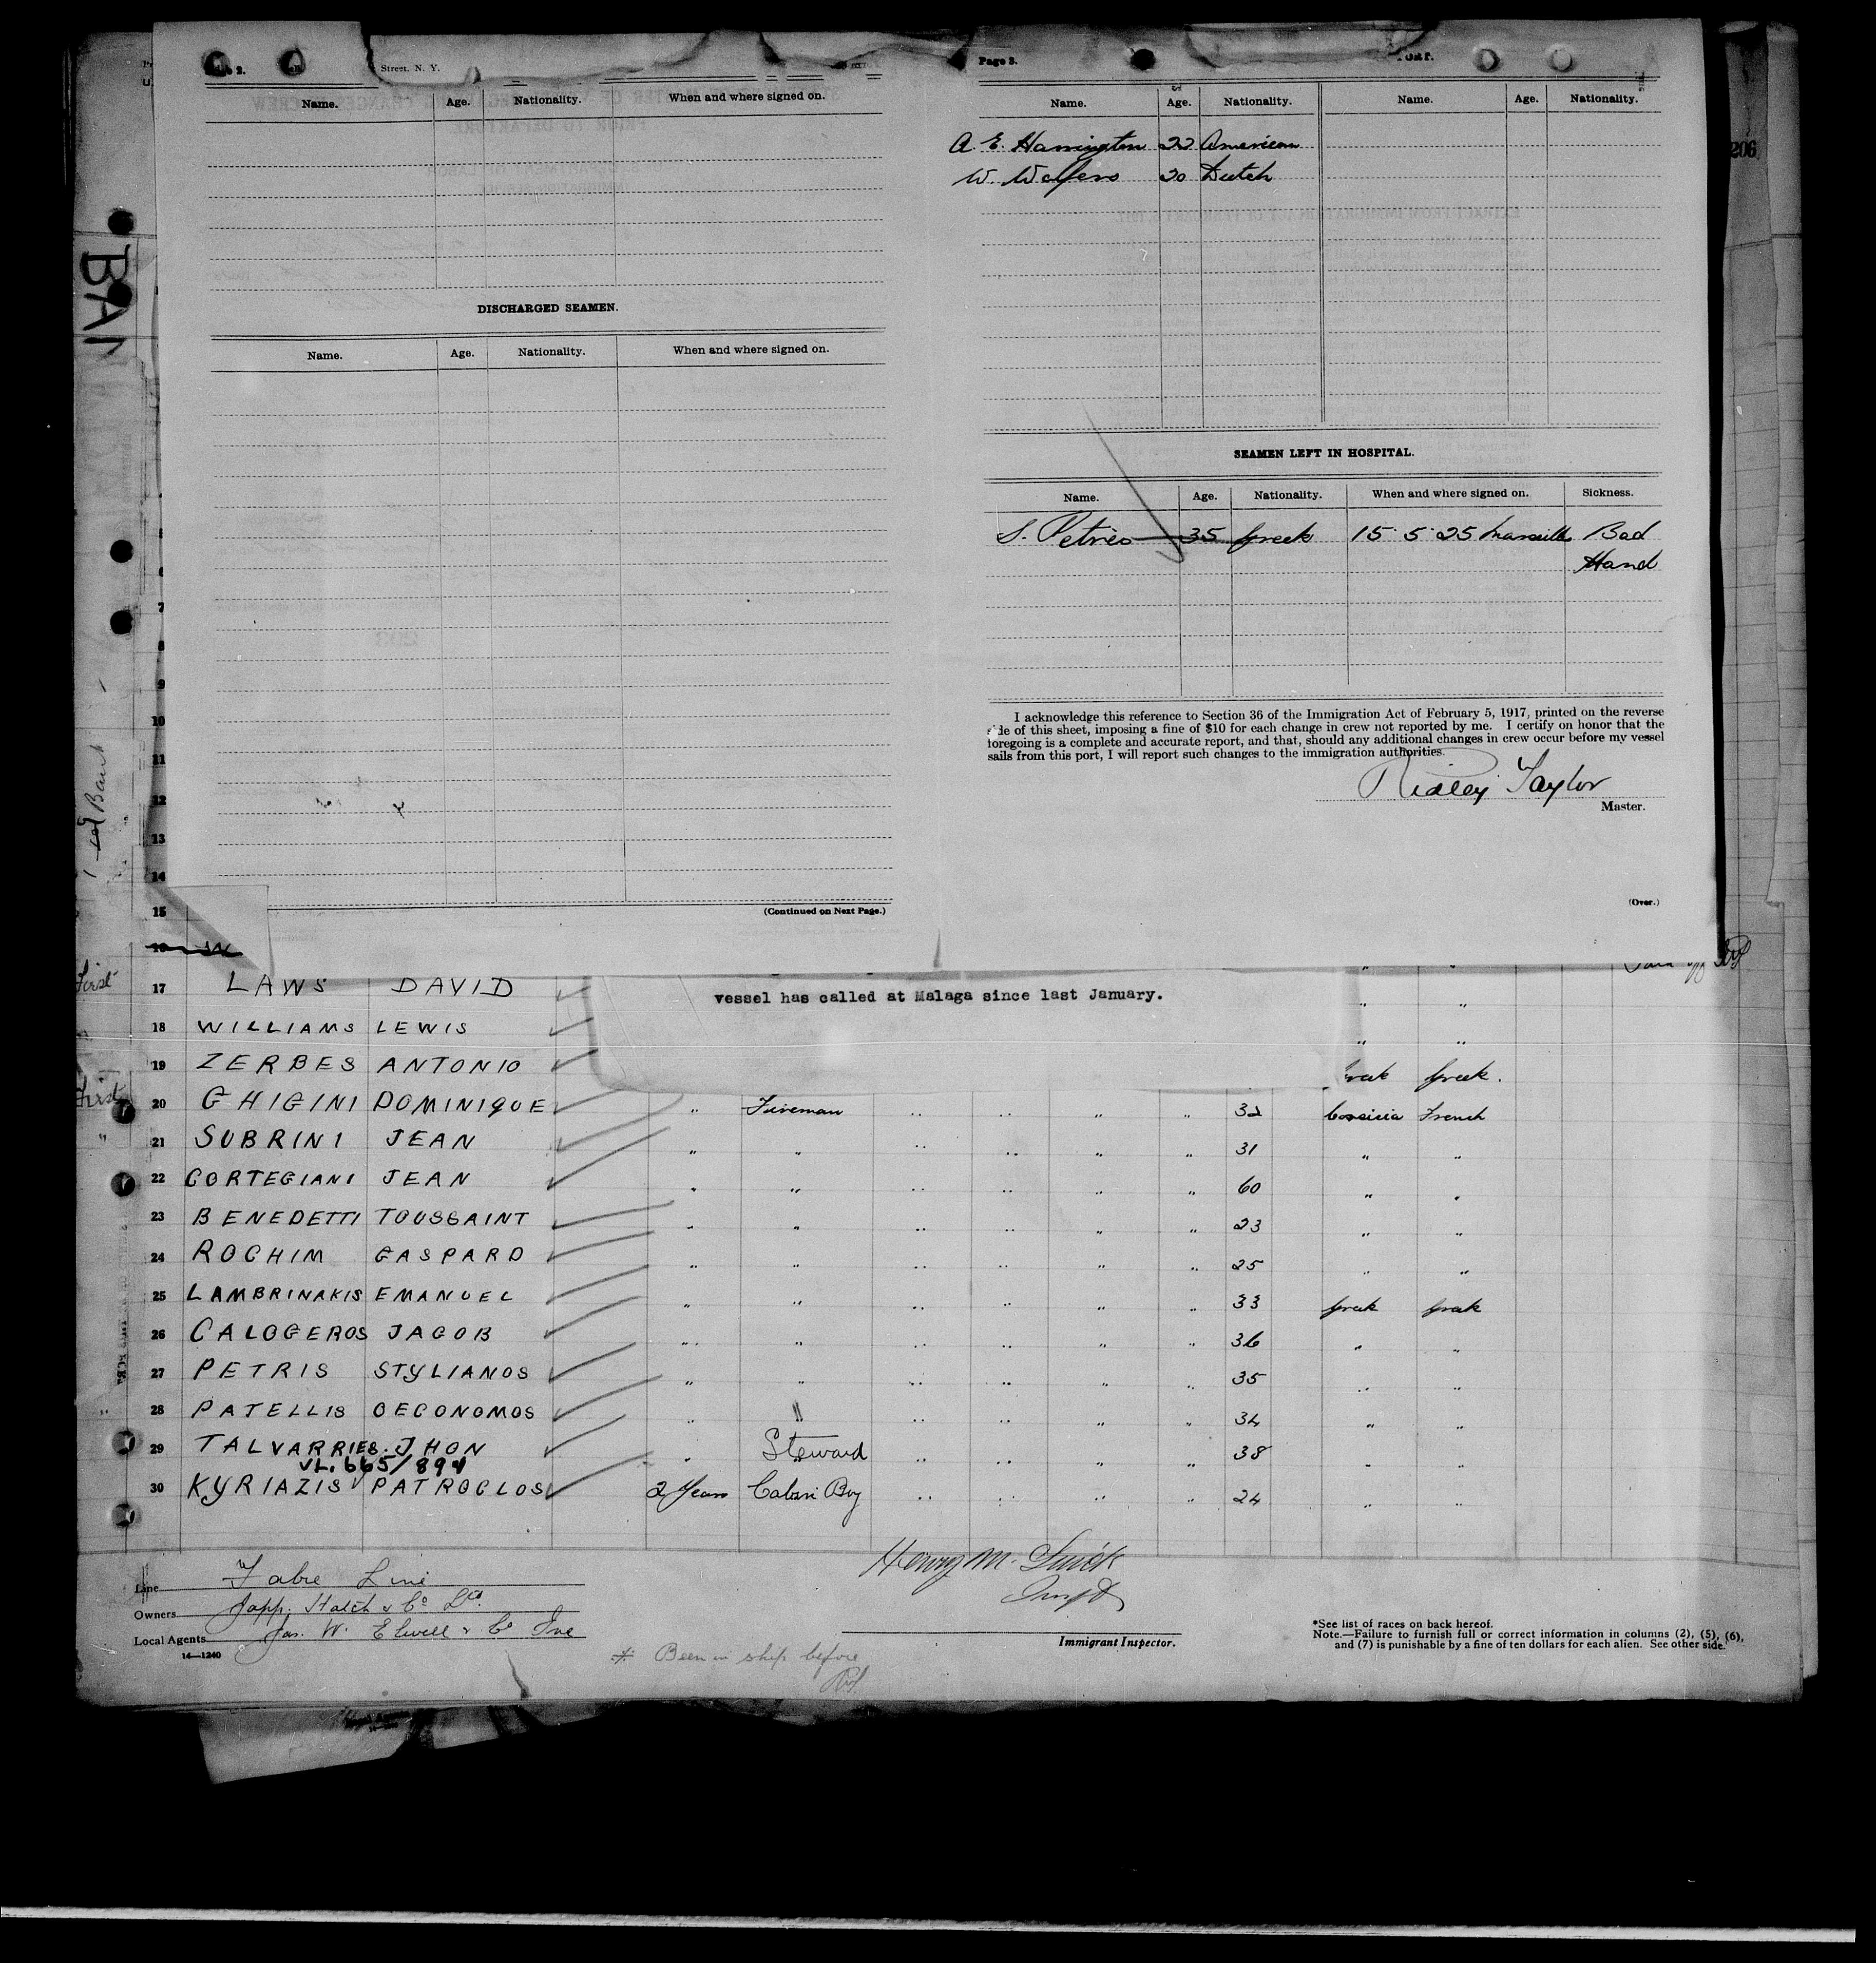 Page 3.
Street. N. Y.
Name. Age. Nationality. When and where signed on.
DISCHARGED SEAMEN.
Name. Age. Nationality. When and where signed on.
(Continued on Next Page.)
Name. Age. Nationality. Name. Age. Nationality.
A. E. Harrington 22 American
W. Wolfers 20 Dutch
SEAMEN LEFT IN HOSPITAL.
Name. Age. Nationality. When and where signed on. Sickness.
S. Petries 35 Greek 15 5 25 Marseille Bad
Hand
I acknowledge this reference to Section 36 of the Immigration Act of February 5, 1917, printed on the reverse
side of this sheet, imposing a fine of $10 for each change in crew not reported by me. I certify on honor that the
foregoing is a complete and accurate report, and that, should any additional changes in crew occur before my vessel
sails from this port, I will report such changes to the immigration authorities.
Ridley Taylor
Master.
(Over.)
206
BAN
7
8
9
10
11
12
13
14
15
First
17 LAWS DAVID " "
vessel has called at Malaga since last January.
18 WILLIAMS LEWIS " "
19 ZERBES ANTONIO Greek.
First
20 GHIGINI DOMINIQUE " Fireman " " " " 32 Corsicia French
21 SUBRINI JEAN " " " " " " 31 " "
22 CORTEGIANI JEAN " " " " " " 60 " "
23 BENEDETTI TOUSSAINT " " " " " " 23 " "
24 ROCHIM GASPARD " " " " " " 25 " "
25 LAMBRINAKIS EMANUEL " " " " " " 33 Greek Greek
26 CALOGEROS JACOB " " " " " " 36 " "
27 PETRIS STYLIANOS " " " " " " 35 " "
28 PATELLIS OECONOMOS " " " " " " 34 " "
29 TALVARRIES. JHON " Steward " " " " 38 " "
VL. 665/894
30 KYRIAZIS PATROCLOS 2 Years Cabin Boy " " " " 24 " "
Line Fabre Line
Owners Japp, Hatch & Co Ld.
Local Agents Jas. W. Elwell & Co Inc
14—1240
Henry M.
Immigrant Inspector.
* Been in ship before
*See list of races on back hereof.
Note.—Failure to furnish full or correct information in columns (2), (5), (6),
and (7) is punishable by a fine of ten dollars for each alien. See other side.